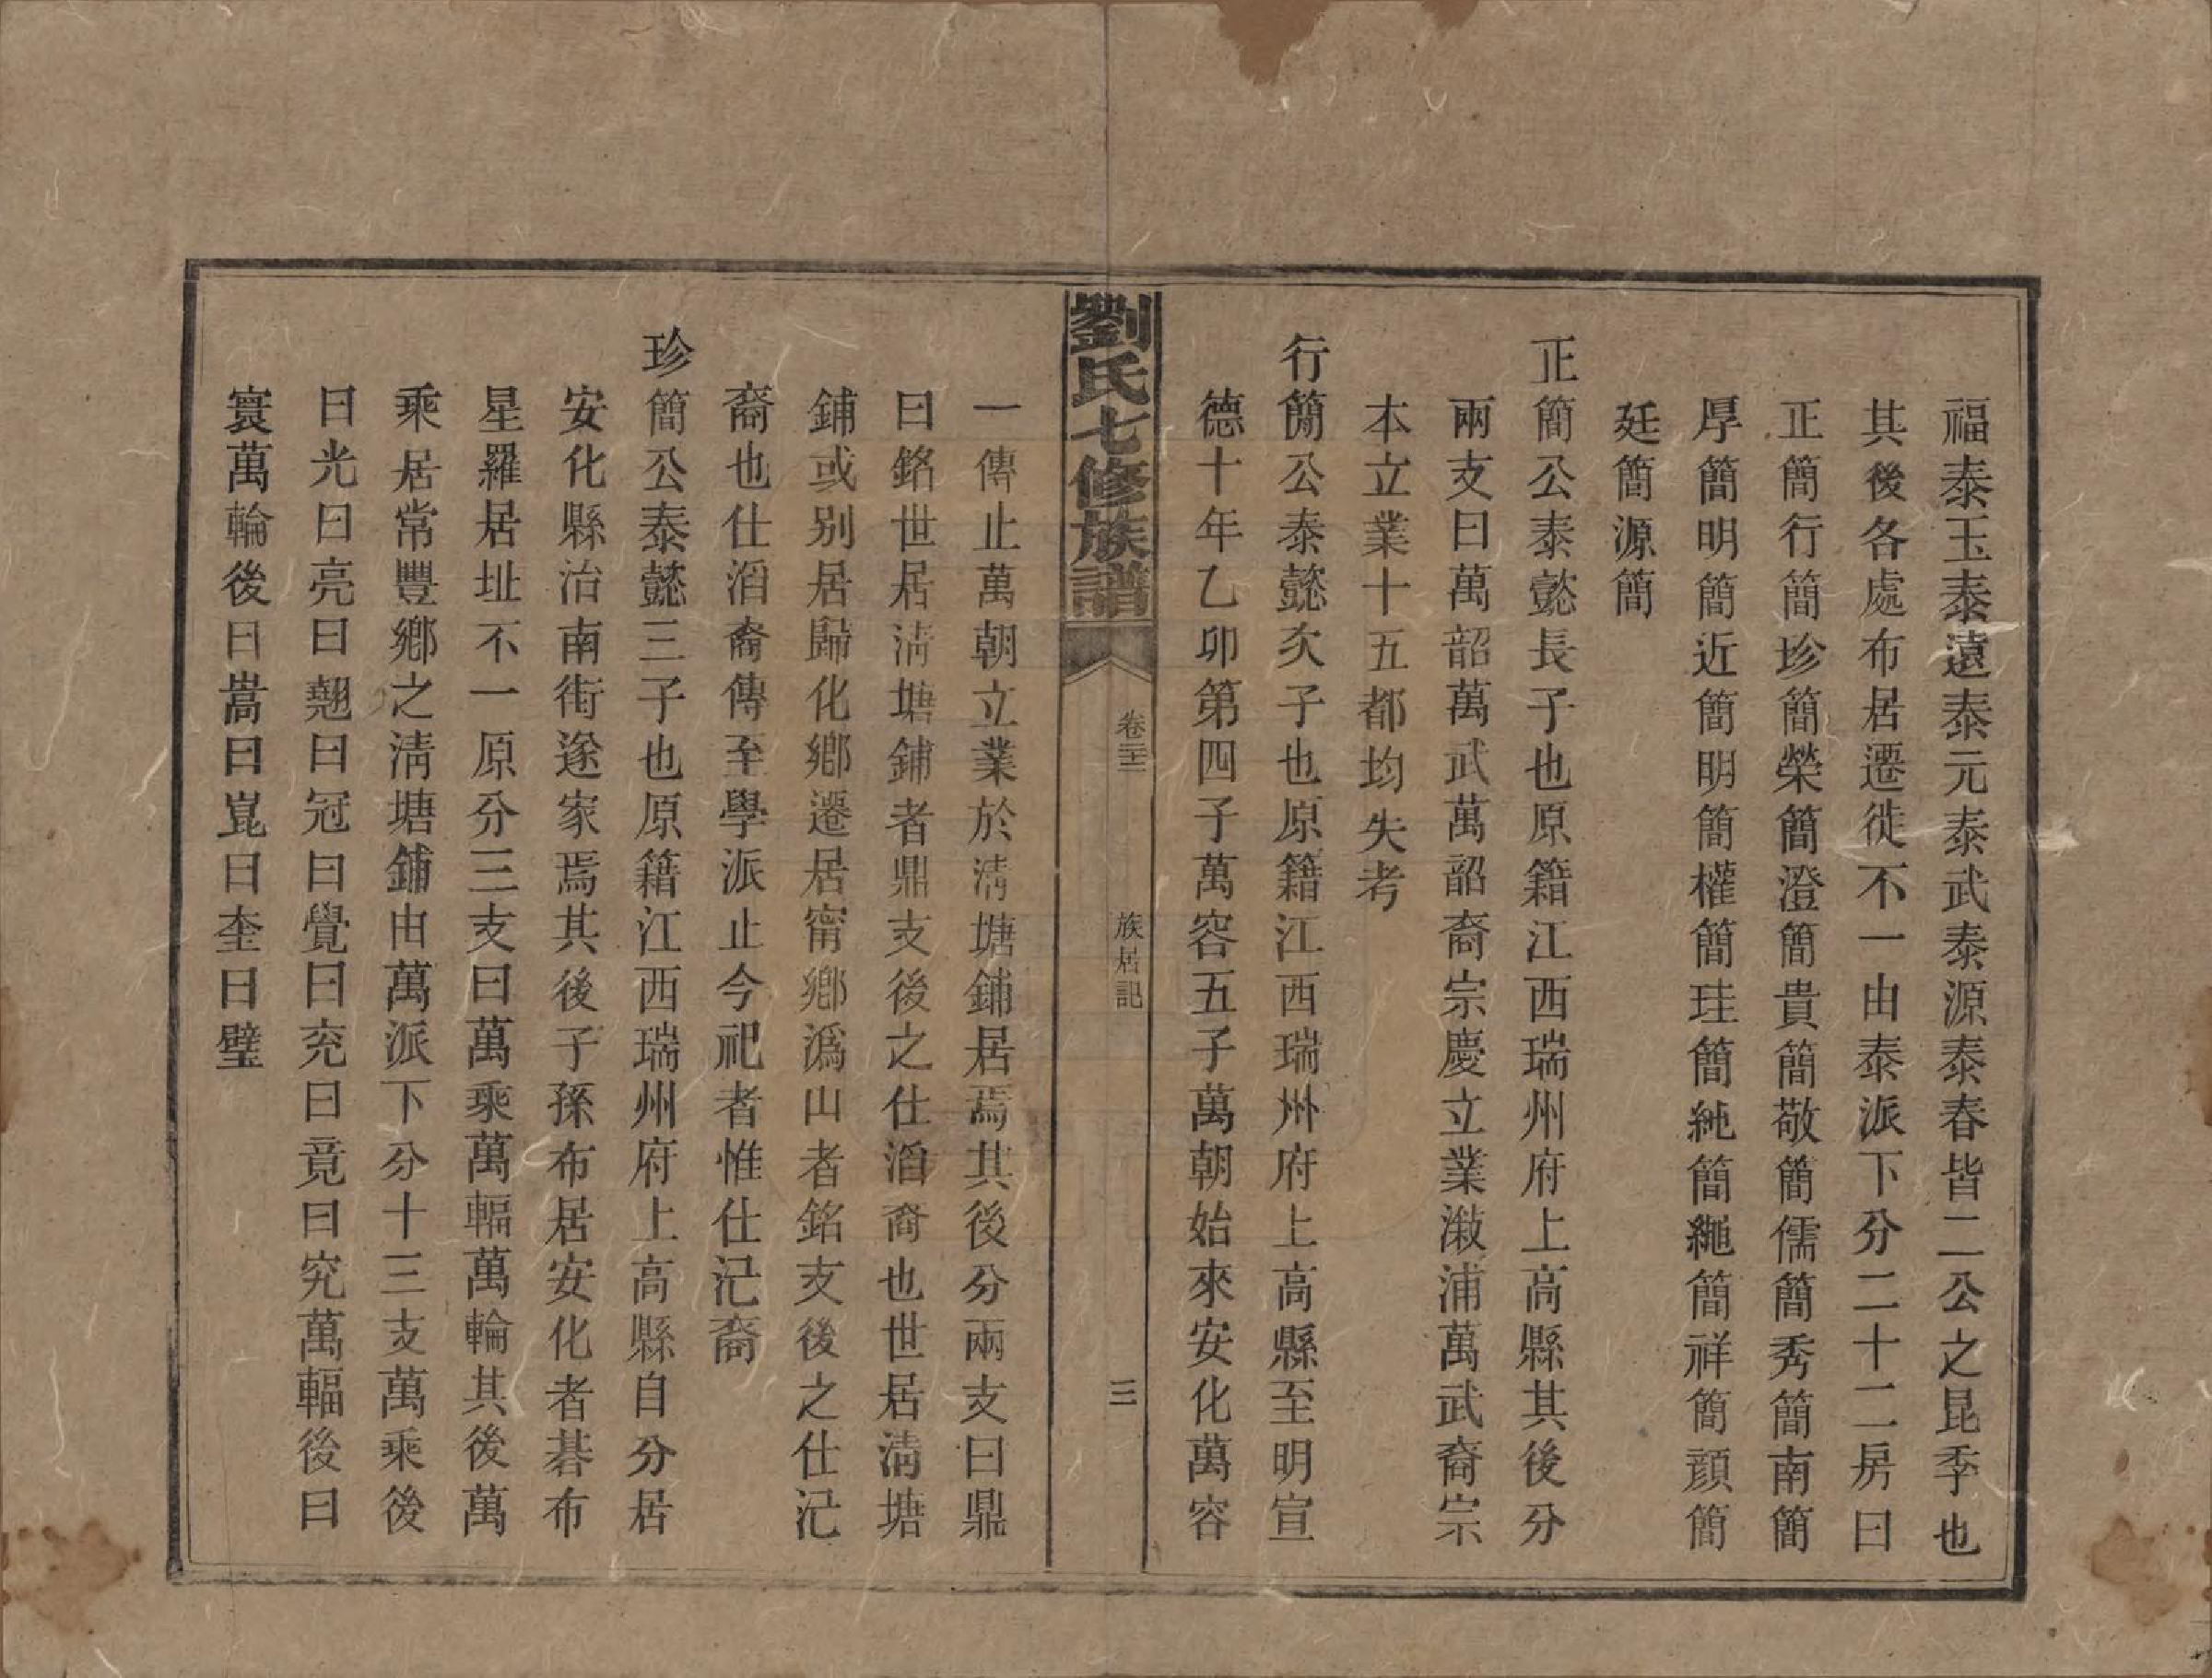 福泰玉泰遠泰元泰武泰源泰春皆二公之昆季也
其後各處布居遷徙不一由泰派下分二十二房曰
正簡行簡珍簡榮簡澄簡貴簡敬簡儒簡秀簡南簡
厚簡明簡近簡明簡權簡珪簡純簡繩簡祥簡顔簡
廷簡源簡
正簡公泰懿長子也原籍江西瑞州府上高縣其後分
兩支曰萬韶萬武萬韶裔宗慶立業漵浦萬武裔宗
本立業十五都均失考
行簡公泰懿次子也原籍江西瑞州府上高縣至明宣
德十年乙卯第四子萬容五子萬朝始來安化萬容
劉氏七修族譜
卷三十三
族居記
三
一傳止萬朝立業於淸塘鋪居焉其後分兩支曰鼎
曰銘世居淸塘鋪者鼎支後之仕滔裔也世居淸塘
鋪或别居歸化鄉遷居甯鄉潙山者銘支後之仕汜
裔也仕滔裔傳至學派止今祀者惟仕汜裔
珍簡公泰懿三子也原籍江西瑞州府上高縣自分居
安化縣治南街遂家焉其後子孫布居安化者碁布
星羅居址不一原分三支曰萬乘萬輻萬輪其後萬
乘居常豐鄉之淸塘鋪由萬派下分十三支萬乘後
曰光曰亮曰翹曰冠曰覺曰充曰竟曰究萬輻後曰
寰萬輪後曰嵩曰崑曰奎曰璧